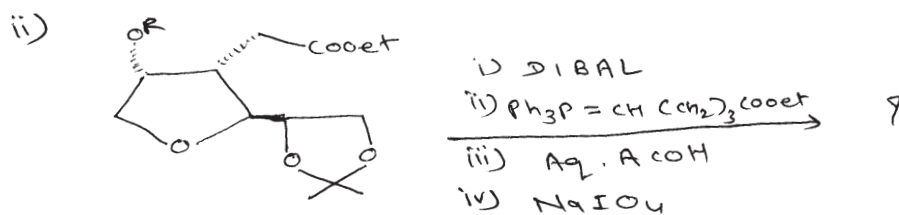 ii)
OR
COOEt
O
O
O
i) DIBAL
ii) Ph3P = CH (CH2)3 COOEt
?
iii) Aq. AcOH
iv) NaIO4